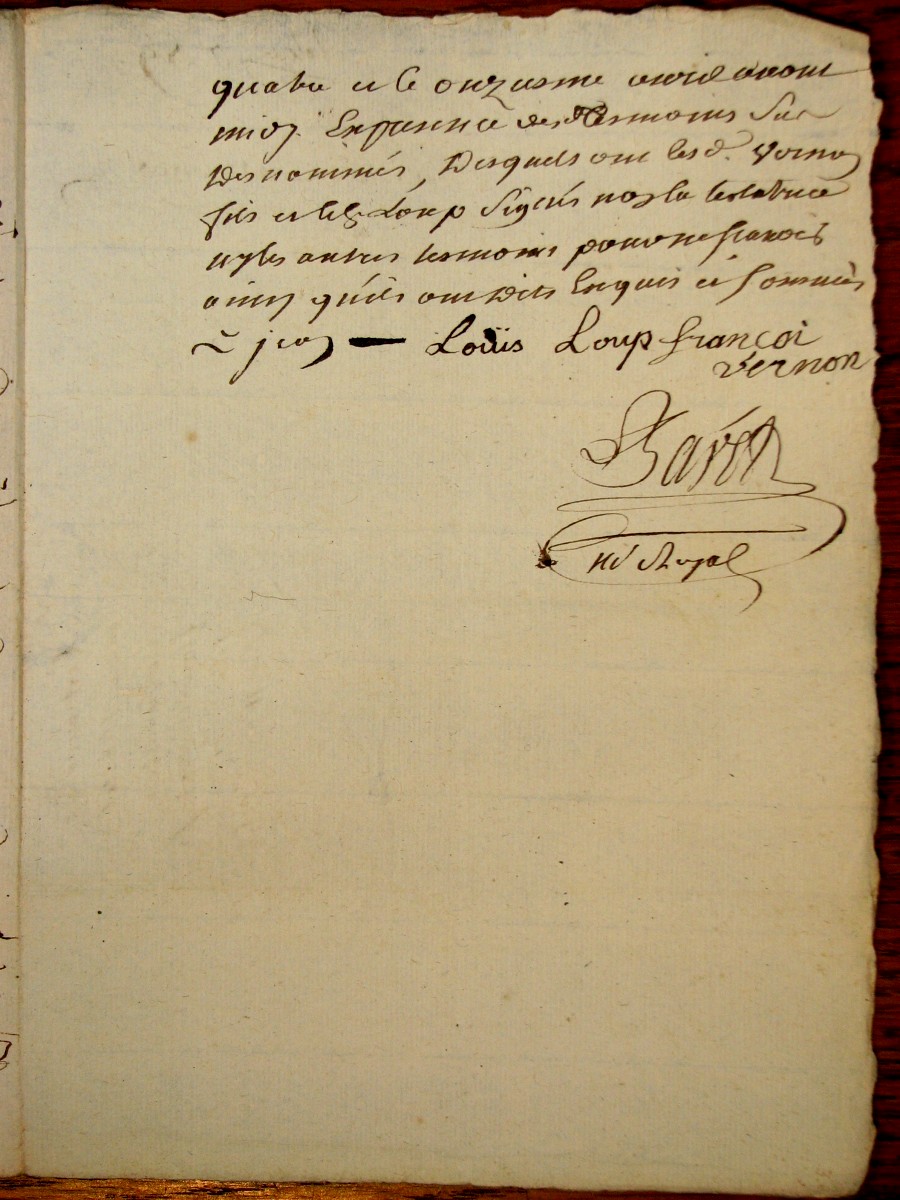 quatre et le onziesme avril avant
midy En presence des tesmoins sus
Des nommés, Desquels ont lesd. Vernon
fils et led. Loup Signés non la testatrice
ny les autres tesmoins pour ne sçavoir
ainsy qu'ils ont Dits Enquis et Sommés
Louis Loup françoi
vernon
Bayet
Nre Royal